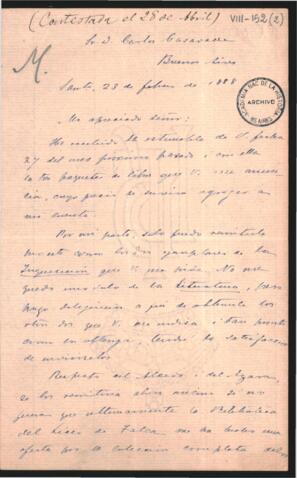 (Contestada el 28 de Abril)
VIII-152 (2)
Sr. D. Carlos Casavalle
Buenos Aires
M.
Santi. 23 de febrero de 1888
ACADEMIA NAC. DE LA HISTORIA
ARCHIVO
BS. AIRES
Mi apreciado señor:
He recibido la estimable de V. fecha
27 del mes próximo pasado i con ella
los paquetes de libros que V. me anuncia,
cuyo precio de agregar a
mi cuenta.
Por mi parte, solo puedo remitirle
los dos ejemplares de la
Inquisicion que V. me pide. No me
queda de la Literatura, pero
hago dilijencias a fin de obtener los
otros dos que V. me indica i tan pronto
como los obtenga, tendré la satisfaccion
de enviárselos.
Respecto del i del
se los remitiria ahora mismo si no
fuera que ultimamente la Biblioteca
del Liceo de Talca me ha hecho una
oferta por la coleccion completa del